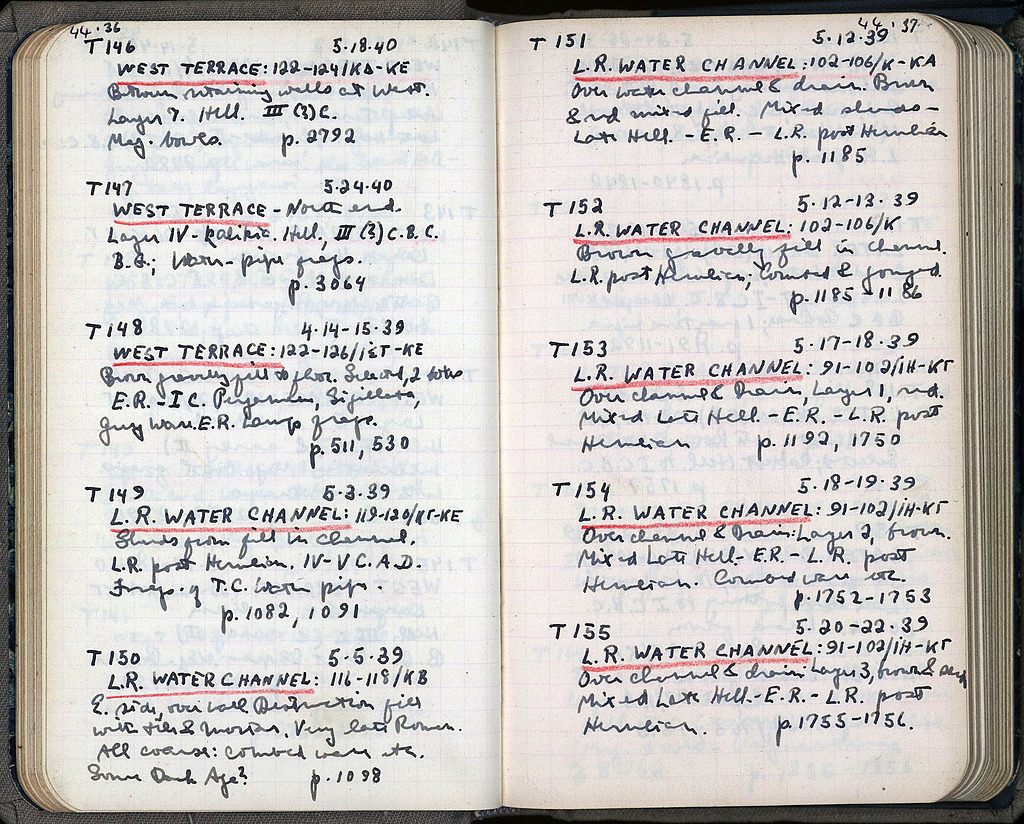 44·36
T 146 5·18·40
WEST TERRACE: 122-124/ΚΔ-ΚΕ
Between retaining walls at West.
Layer 7. Hell. III (?) C.
Meg. bowls. p. 2792
T 147 5·24·40
WEST TERRACE - North end.
Layer IV - Hell, III (?) C. B.C.
B.G.; Water-pipe frags.
p. 3064
T 148 4·14-15·39
WEST TERRACE: 122-126/ -ΚΕ
Brown gravelly fill to floor. Selected, 2
E.R. - I C. Pergamene, Sigillata,
Gray Ware. E.R. Lamp frags.
p. 511, 530
T 149 5·3·39
L.R. WATER CHANNEL: 119-120/ΚΓ-ΚΕ
Sherds from fill in Channel.
L.R. post Herulian. IV-V C. A.D.
Frags. of T.C. Water pipe.
p. 1082, 1091
T 150 5·5·39
L.R. WATER CHANNEL: 116-118/ΚΒ
E. side, over wall Destruction fill
with tiles & mortar. Very late Roman.
All coarse: combed ware etc.
Some Dark Age? p. 1098
44·37
T 151 5·12·39
L.R. WATER CHANNEL: 102-106/Κ-ΚΑ
Over water channel & drain. Brown
& red mixed fill. Mixed sherds-
Late Hell. - E.R. - L.R. post Herulian
p. 1185
T 152 5·12-13·39
L.R. WATER CHANNEL: 102-106/Κ
Brown gravelly fill in channel.
L.R. post Herulian; Combed & gouged.
p. 1185-1186
T 153 5·17-18·39
L.R. WATER CHANNEL: 91-102/ΙΗ-ΚΓ
Over channel & Drain, Layer 1, red.
Mixed Late Hell. - E.R. - L.R. post
Herulian p. 1192, 1750
T 154 5·18-19·39
L.R. WATER CHANNEL: 91-102/ΙΗ-ΚΓ
Over channel & Drain: Layer 2, brown.
Mixed Late Hell- E.R. - L.R. post
Herulian. Combed ware etc.
p. 1752-1753
T 155 5·20-22·39
L.R. WATER CHANNEL: 91-102/ΙΗ-ΚΓ
Over channel & drain: Layer 3, brown &
Mixed Late Hell.- E.R. - L.R. post
Herulian. p. 1755-1756.